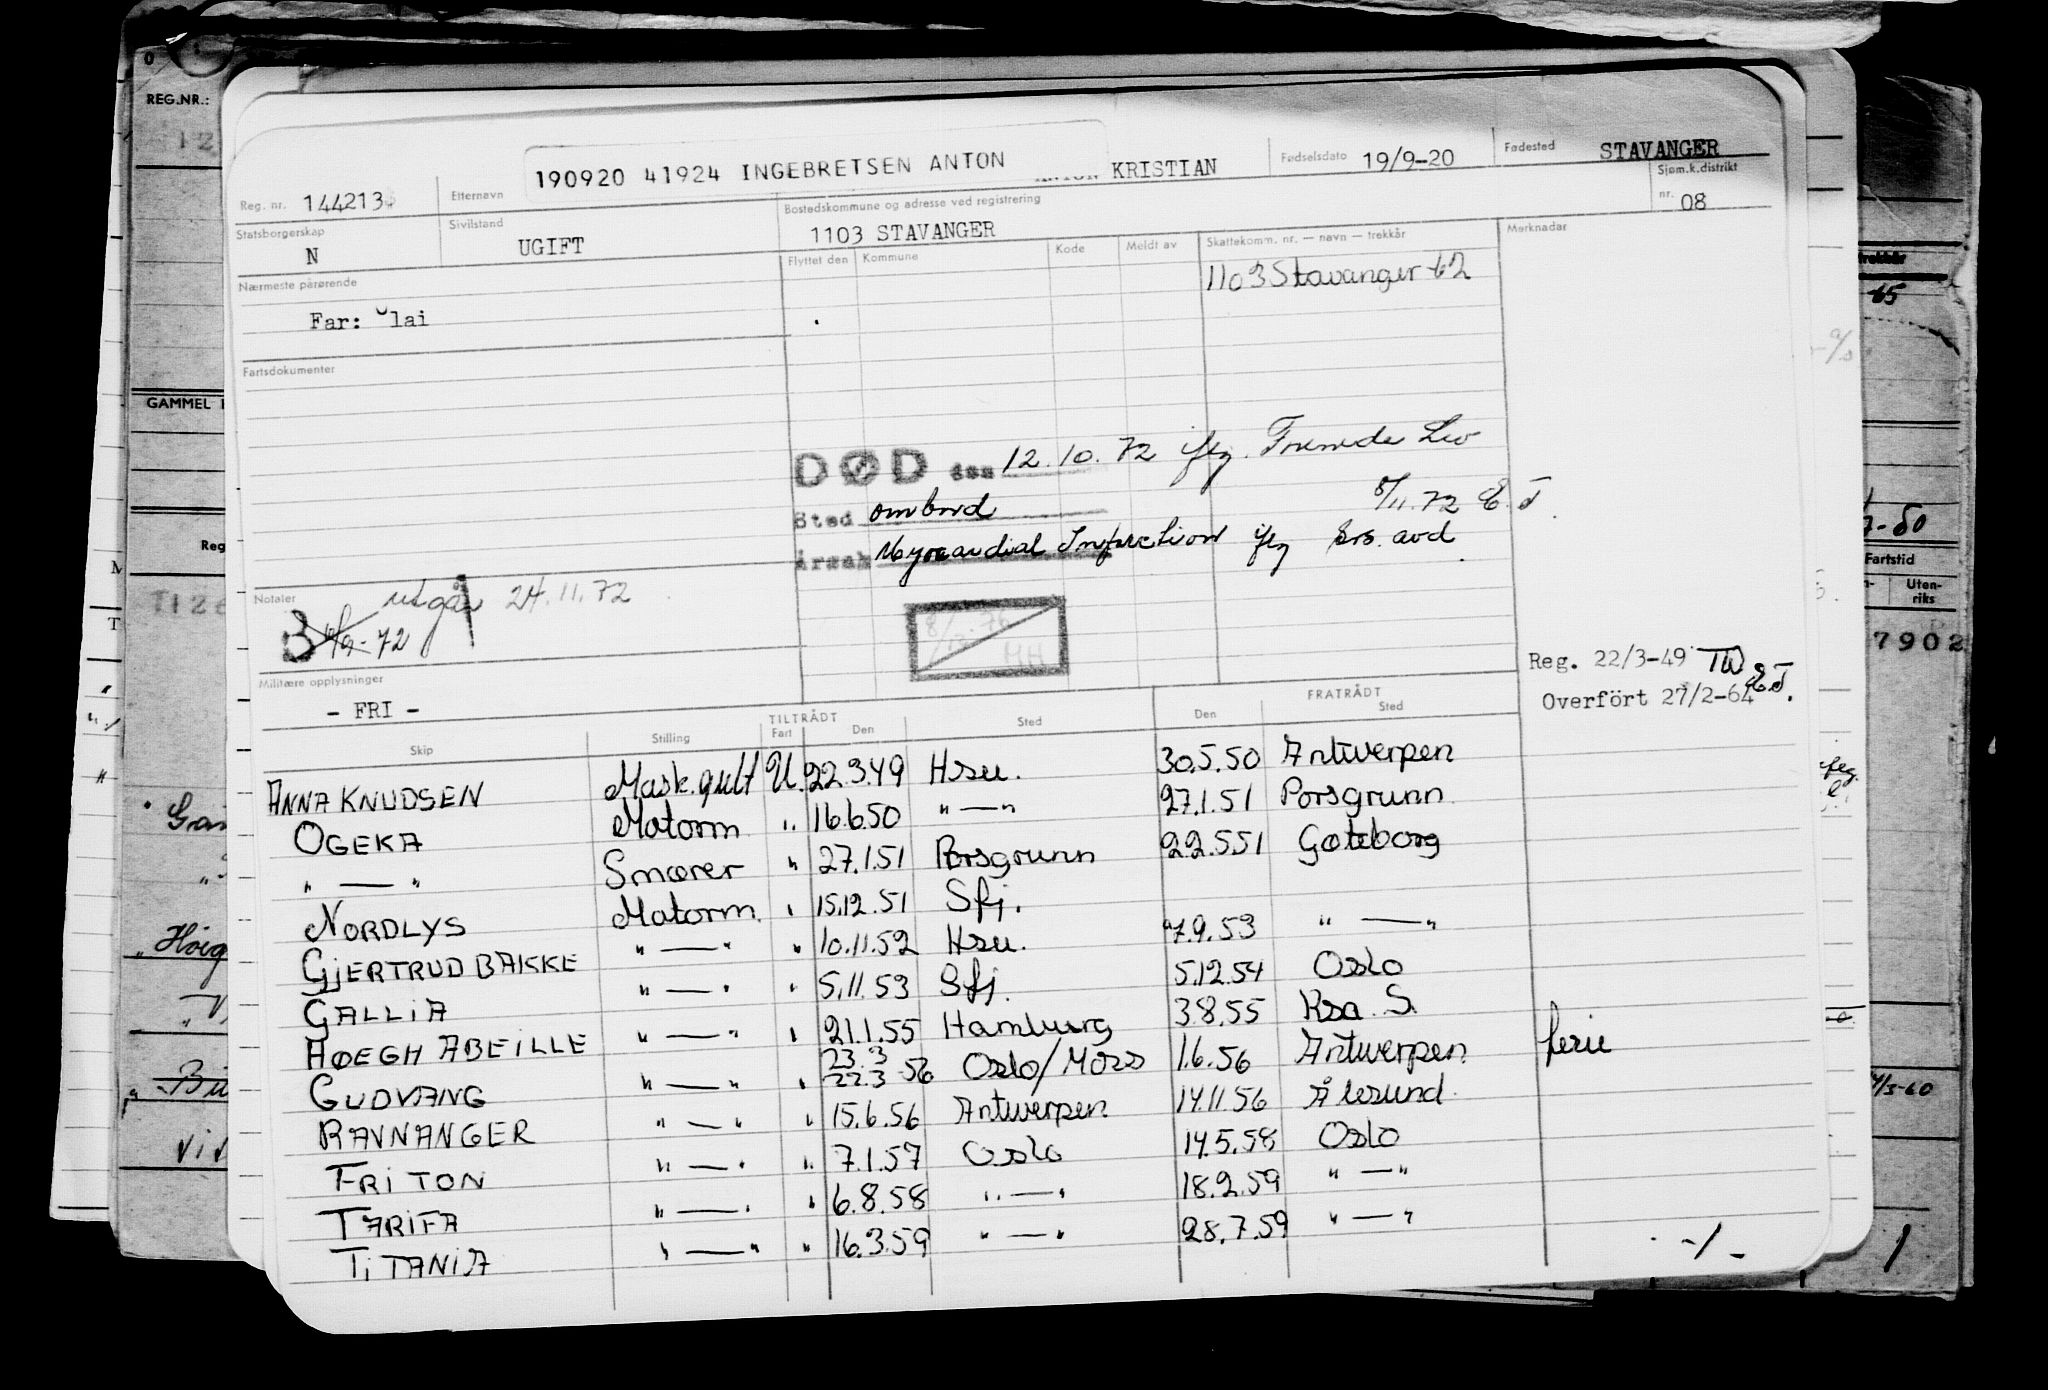 REG.NR.:
190920 41924 INGEBRETSEN ANTON
KRISTIAN
Fødselsdato 19/9-20
Fødested STAVANGER
Reg. nr. 144213
Etternavn
Sjøm.k.distrikt nr. 08
Statsborgerskap N
Sivilstand UGIFT
Bostedskommune og adresse ved registrering
1103 STAVANGER
Merknader
Flyttet den Kommune Kode Meldt av Skattekomm. nr. — navn — trekkår
1103 Stavanger 62
Nærmeste pårørende
Far: lai
Fartsdokumenter
GAMMEL
DØD den 12.10.72 iflg.
8/11.72 E.T.
Sted ombord
Årsak Myocardial Infarction iflg avd.
Notater
utgår 24.11.72
3 /9-72
Militære opplysninger
- FRI -
Reg. 22/3-49 TW
Overfört 27/2-64 E.T.
TILTRÅDT FRATRÅDT
Skip Stilling Fart Den Sted Den Sted
ANNA KNUDSEN Mask.gutt U. 22.3.49 Hsu. 30.5.50 Antwerpen
OGEKA Matorm " 16.6.50 " — " 27.1.51 Porsgrunn
" — " Smører " 27.1.51 Porsgrunn 22.5.51 Gøteborg
NORDLYS Matorm. " 15.12.51 Sfj.
GJERTRUD BAKKE " — " " 10.11.52 Hsu. 7.9.53 " — "
GALLIA " — " " 5.11.53 Sfj. 5.12.54 Oslo
HØEGH ABEILLE " — " " 21.1.55 Hamburg 3.8.55 Ksa. S.
GUDVANG " — " " 23.3 22.3 56 Oslo/Moss 1.6.56 Antwerpen ferie
RAVNANGER " — " " 15.6.56 Antwerpen 14.11.56 Ålesund
FRITON " — " " 7.1.57 Oslo 14.5.58 Oslo
TARIFA " — " " 6.8.58 " — " 18.2.59 " — "
TITANIA " — " " 16.3.59 " — " 28.7.59 " — "
-/-
Fartstid
Uten-
riks
7902